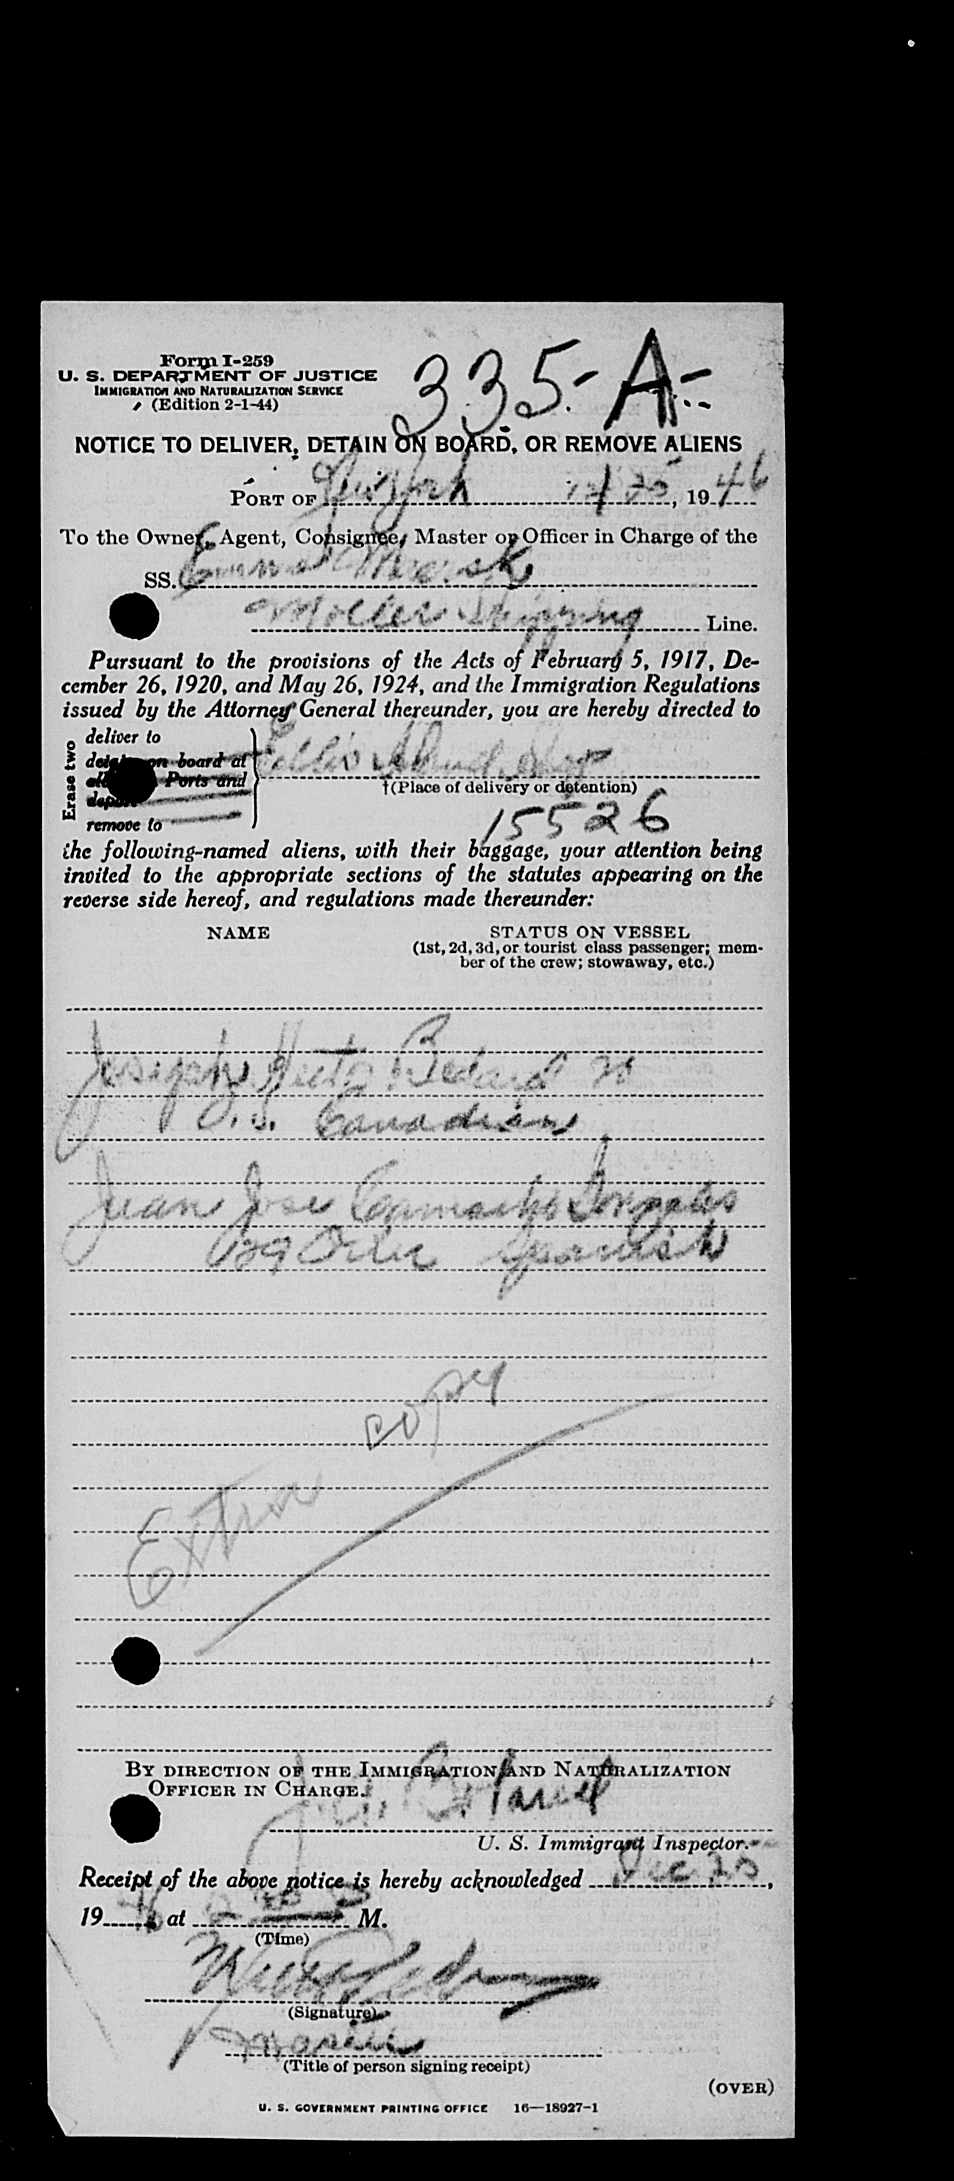 335-A-
Form I-259
U. S. DEPARTMENT OF JUSTICE
IMMIGRATION AND NATURALIZATION SERVICE
(Edition 2-1-44)
NOTICE TO DELIVER, DETAIN ON BOARD, OR REMOVE ALIENS
PORT OF New York 12/25, 1946
To the Owner, Agent, Consignee, Master or Officer in Charge of the
SS. Maersk
Moller Shipping Line.
Pursuant to the provisions of the Acts of February 5, 1917, De-
cember 26, 1920, and May 26, 1924, and the Immigration Regulations
issued by the Attorney General thereunder, you are hereby directed to
Erase two
deliver to
detain on board at
all Ports and
deport
remove to
Ellis Island
†(Place of delivery or detention)
15526
the following-named aliens, with their baggage, your attention being
invited to the appropriate sections of the statutes appearing on the
reverse side hereof, and regulations made thereunder:
NAME STATUS ON VESSEL
(1st, 2d, 3d, or tourist class passenger; mem-
ber of the crew; stowaway, etc.)
Joseph Bedard
Canadian
Juan Jose Camacho Gonzales
Spanish
Extra copy
BY DIRECTION OF THE IMMIGRATION AND NATURALIZATION
OFFICER IN CHARGE.
U. S. Immigrant Inspector.
Receipt of the above notice is hereby acknowledged Dec 25,
1946 at M.
(Time)
(Signature)
Master
(Title of person signing receipt)
(OVER)
U. S. GOVERNMENT PRINTING OFFICE 16—18927-1